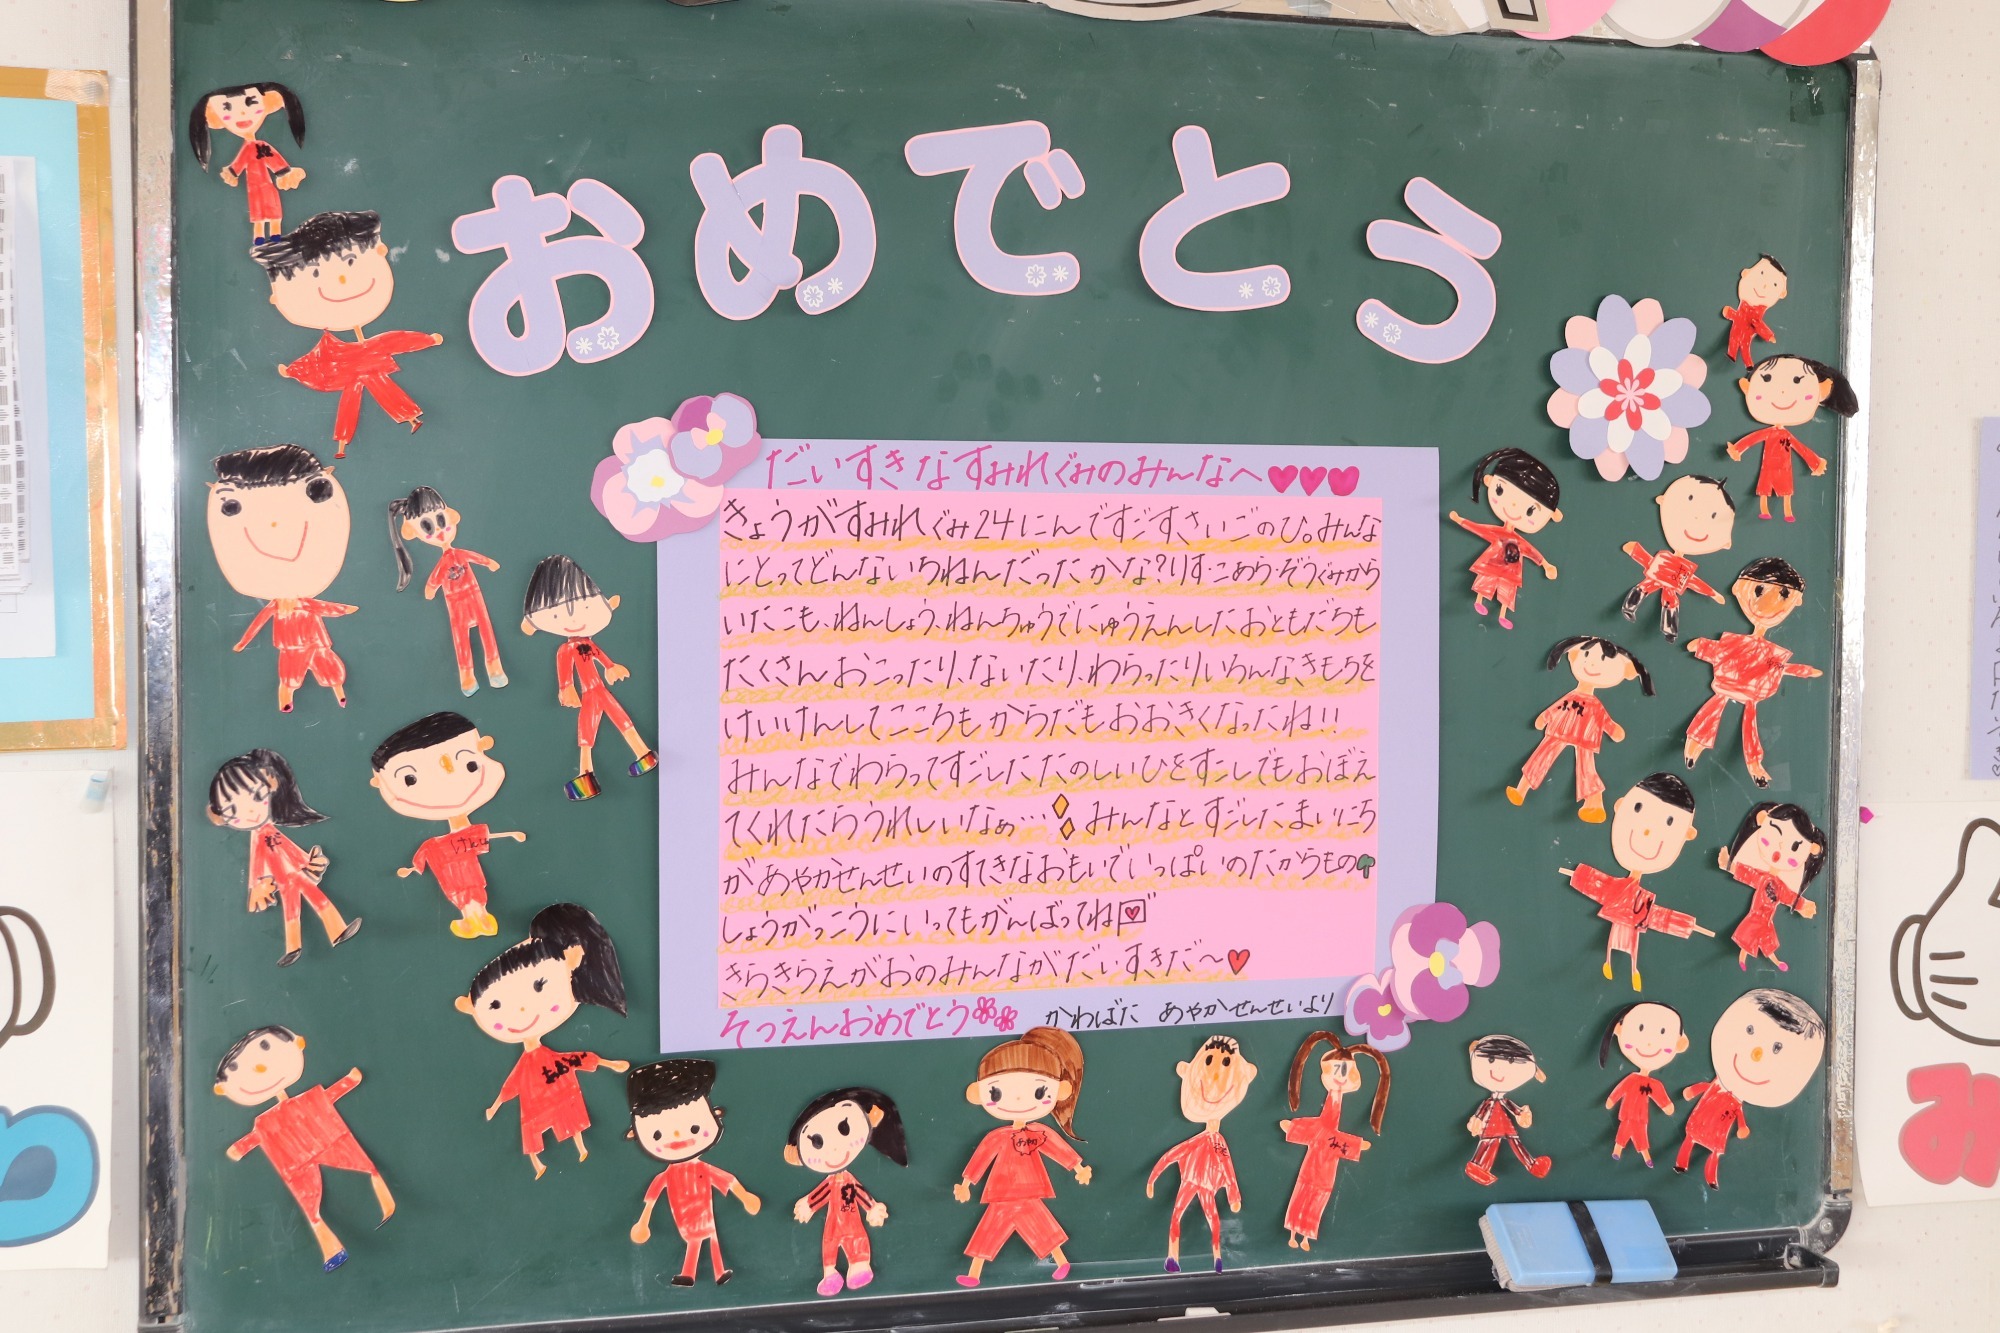 おめでとう
だいすきなすみれぐみのみんなへ♥♥♥
きょうがすみれぐみ24にんですごすさいごのひ。みんな
にとってどんないちねんだったかな?りす・こあら・ぞうぐみから
いたこも、ねんしょう、ねんちゅうでにゅうえんしたおともだちも
たくさんおこったり、ないたり、わらったりいろんなきもちを
けいけんしてこころもからだもおおきくなったね!!
みんなでわらってすごしたたのしいひをすこしでもおぼえ
てくれたらうれしいなぁ… みんなとすごしたまいにち
があやかせんせいのすてきなおもいでいっぱいのたからもの
しょうがっこうにいってもがんばってね
きらきらえがおのみんながだいすきだ〜♥
そつえんおめでとう かわばた あやかせんせいより